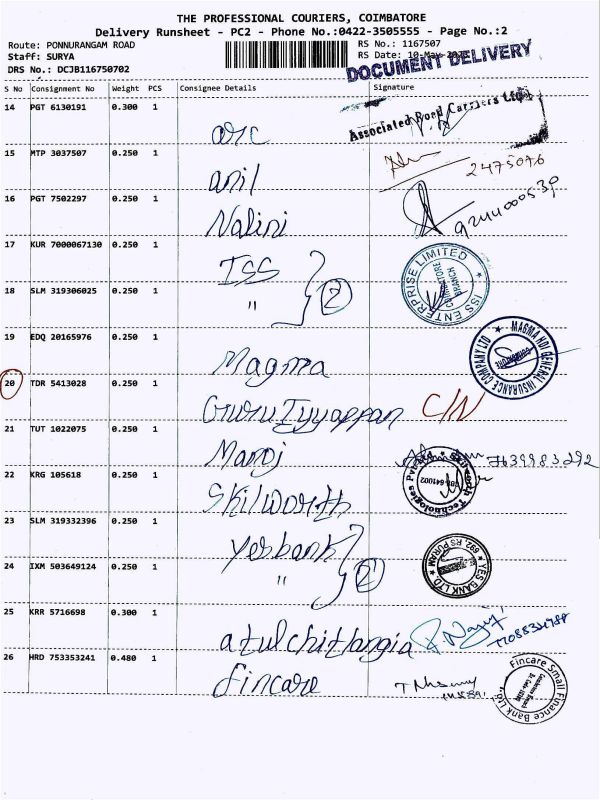 THE PROFESSIONAL COURIERS, COIMBATORE
Delivery Runsheet - PC2 - Phone No.:0422-3505555 - Page No.:2
Route: PONNURANGAM ROAD RS No.: 1167507
Staff: SURYA RS Date: 10-May
DRS No.: DCJB116750702
DOCUMENT DELIVERY
S No Consignment No Weight PCS Consignee Details Signature
14 PGT 6130191 0.300 1 arc Associated Road Carriers Ltd
15 MTP 3037507 0.250 1 anil 2475076
16 PGT 7502297 0.250 1 Nalini
17 KUR 7000067130 0.250 1 ISS ISS ENTERPRISE LIMITED COIMBATORE BRANCH
18 SLM 319306025 0.250 1 " 2
19 EDQ 20165976 0.250 1 Magma MAGMA HDI GENERAL INSURANCE COMPANY LTD
20 TDR 5413028 0.250 1 Guru Iyyappan C/N
21 TUT 1022075 0.250 1 Manoj 7639983292
22 KRG 105618 0.250 1 Skilworth Skilworth Technologies Private
23 SLM 319332396 0.250 1 yesbank YES BANK LTD 692, RS PURAM
24 IXM 503649124 0.250 1 " 2
25 KRR 5716698 0.300 1 atul chitlangia
26 HRD 753353241 0.480 1 fincare Fincare Small Finance Bank Ltd